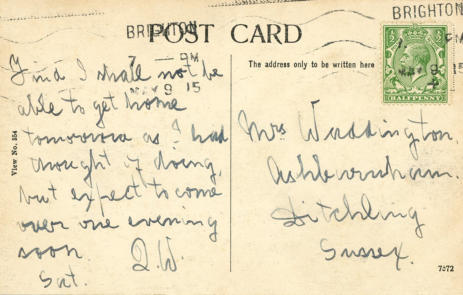 BRIGHTON
BRIGHTON
POST CARD
7 - PM
MAY 9 15
The address only to be written here
HALFPENNY
View No. 154
Find I shall not be
able to get home
tomorrow as I had
thought of doing,
but expect to come
over one evening
soon.
Sat.
Mrs Waddington.
Ashburnham.
Ditchling
Sussex.
7872